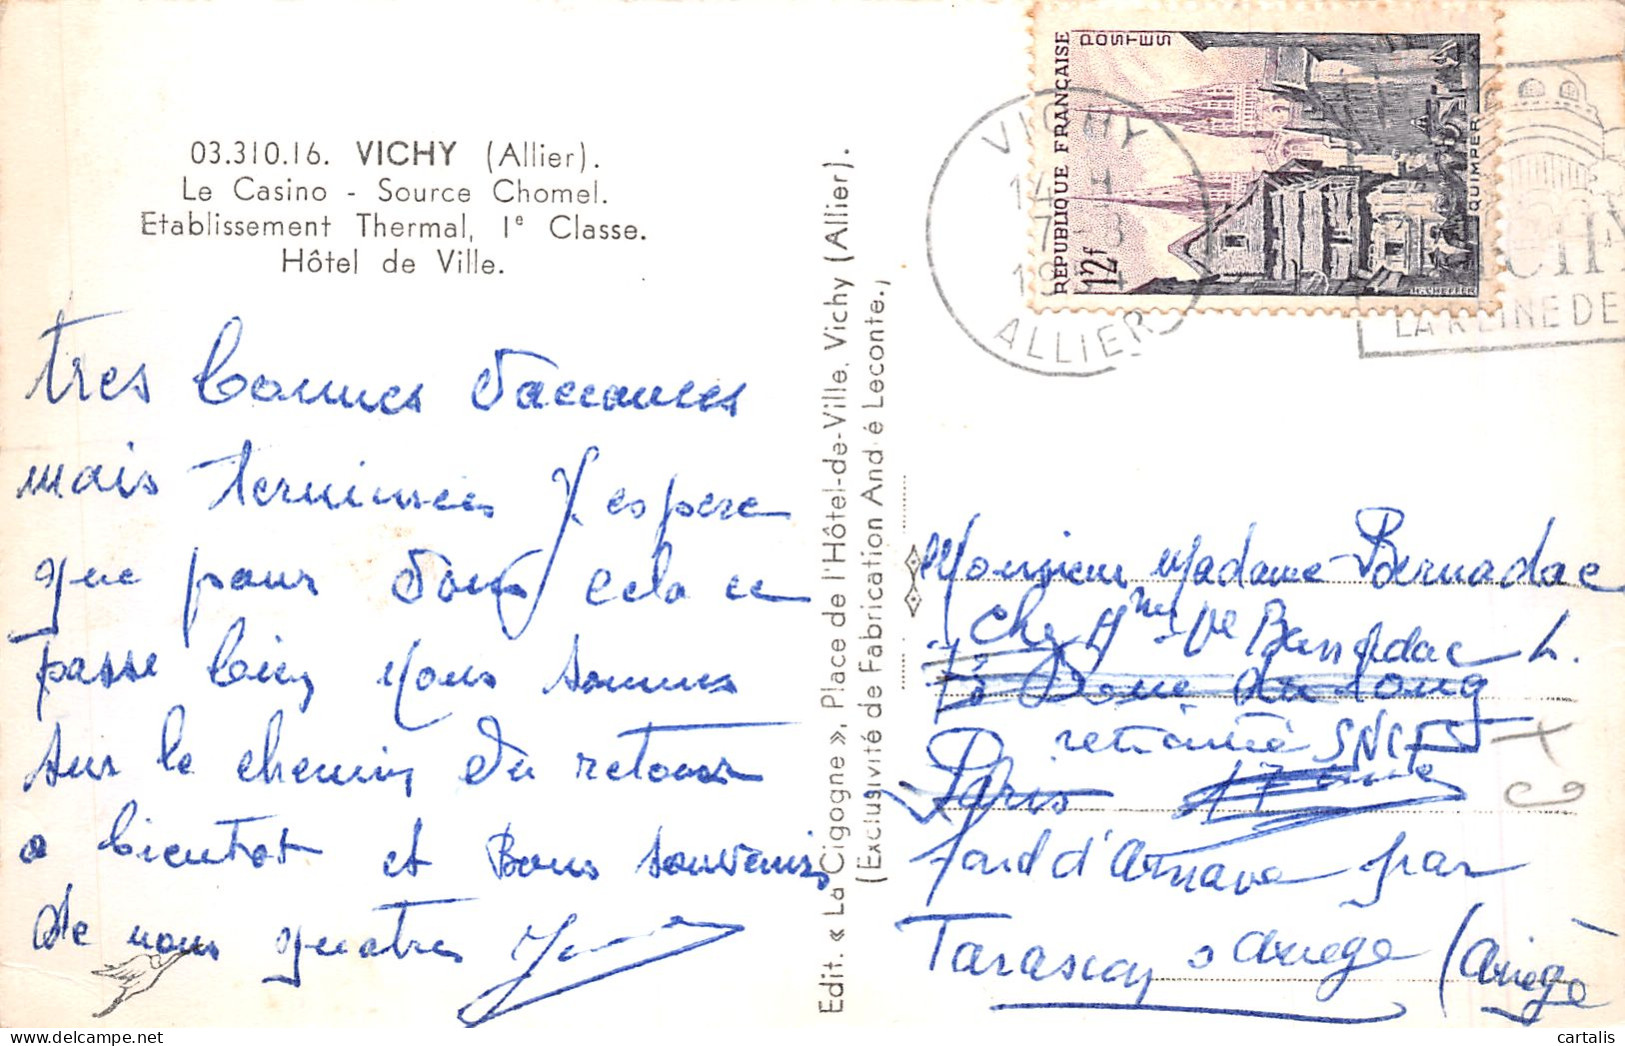 03.310.16. VICHY (Allier).
Le Casino - Source Chomel.
Etablissement Thermal, 1e Classe.
Hôtel de Ville.
tres bonnes vaccances
mais terminées J espere
que pour vous cela ce
passe bien Nous sommes
sur le chemin du retour
a bientot et Bons souvenirs
de nous quatres
Edit. « La Cigogne », Place de l'Hôtel-de-Ville, Vichy (Allier).
(Exclusivité de Fabrication And é Leconte.)
RÉPUBLIQUE FRANÇAISE
POSTES
12f
QUIMPER
H. CHEFFER
VICHY
14 H
7 - 8
1954
ALLIER
LA REINE DE
Monsieur Madame Bernadac
che Mme Ve Bernadac L.
Rue du
retraitée SNCF
Paris 17 eme
fond d'Arnave par
Tarascon s ariege (Ariège
cartalis